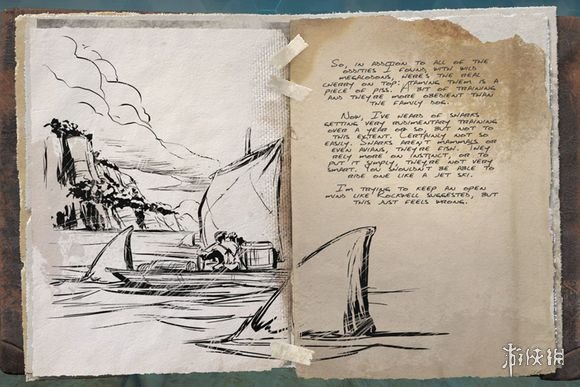 So, in addition to all of the
oddities I found with wild
megalodons, here's the real
cherry on top: taming them is a
piece of piss. A bit of training
and they're more obedient than
the family dog.
Now, I've heard of sharks
getting very rudimentary training
over a year or so, but not to
this extent. Certainly not so
easily. Sharks aren't mammals or
even avians, they're fish. They
rely more on instinct, or to
put it simply, they're not very
smart. You shouldn't be able to
ride one like a jet ski.
I'm trying to keep an open
mind like Rockwell suggested, but
this just feels wrong.
游侠网